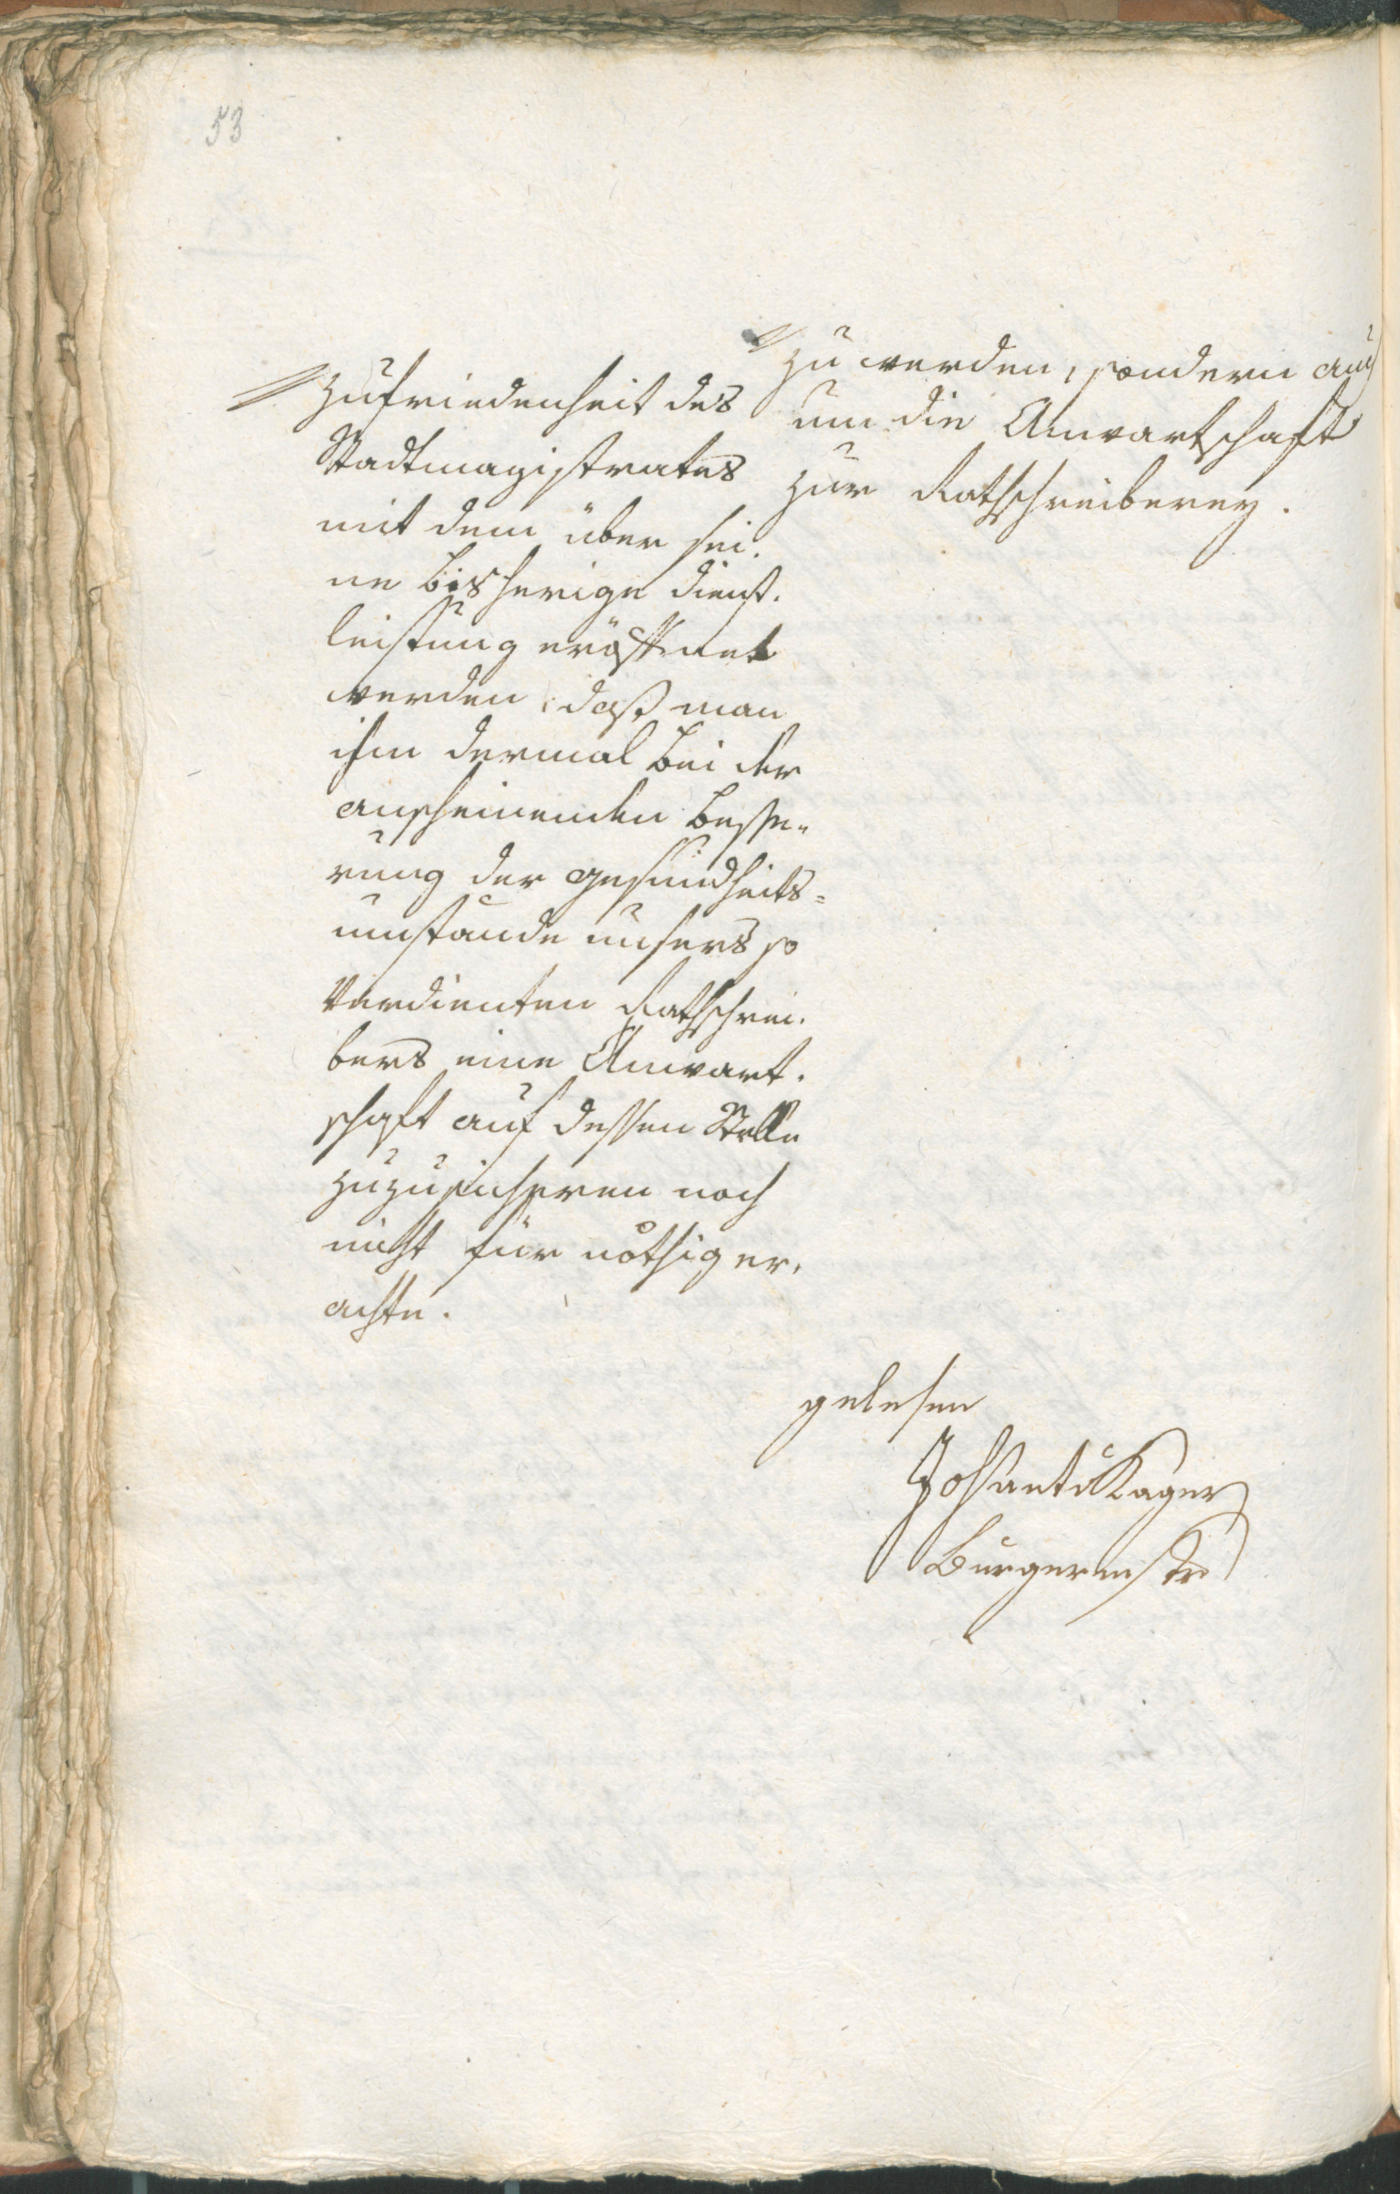 53
// Zufriedenheit des
Stadtmagistrates
mit dem über sei-
ne bisherige Dienst-
leistung eröffnet
werden, daß man
ihm dermal bei der
anscheinenden Besse-
rung der Gesundheits-
umstände unsers so
verdienten Rathschrei-
bers eine Anwart-
schaft auf dessen Stelle
zuzusicheren noch
nicht für nöthig er-
achte.
// zu werden, sondern auch
um die Anwartschaft
zur Rathschreiberey.
gelesen
Kager
Burgermster